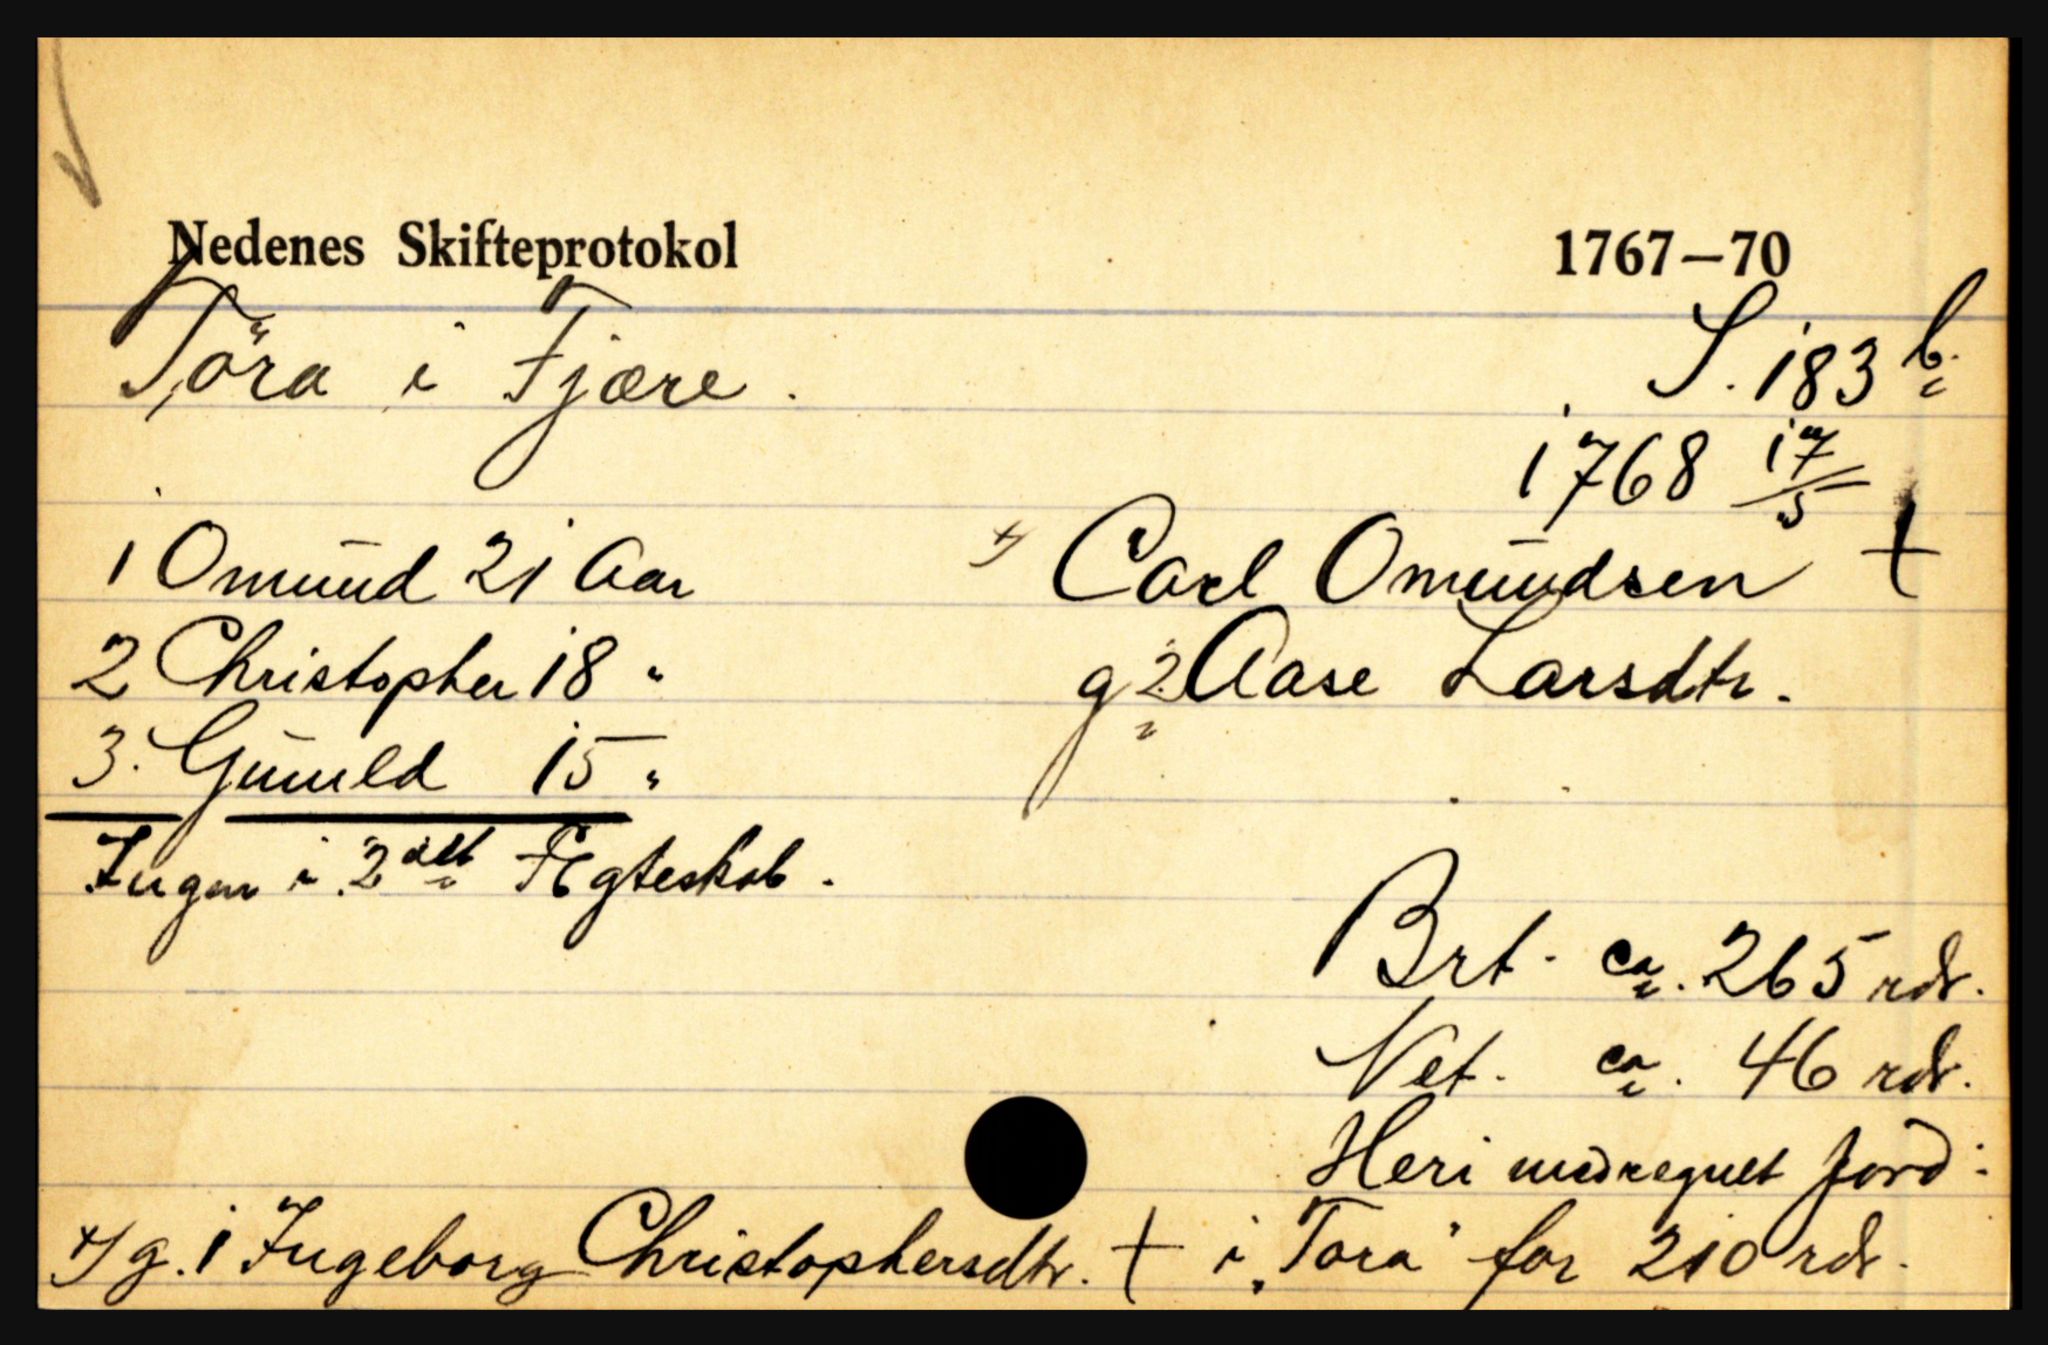 Nedenes Skifteprotokol 1767–70
Töra i Fjære. S. 183 b.
1768 17/5
1 Omund 21 Aar +) Carl Omundsen +
2 Christopher 18 " g 2 Aase Larsdtr.
3. Gunuld 15 "
Ingen i 2det Ægteskab.
Brt. ca. 265 rdr.
Net. ca. 46 rdr.
Heri medregnet Jord:
+) g. 1 Ingeborg Christophersdtr. + i "Tora" for 210 rdr.